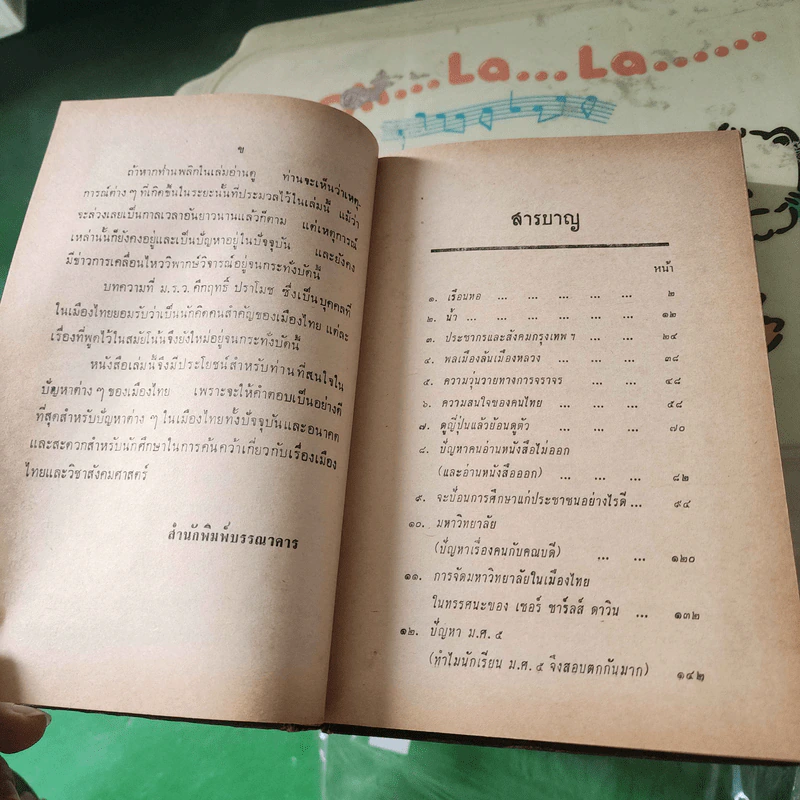 La...La......
ข
ถ้าหากท่านพลิกในเล่มอ่านดู ท่านจะเห็นว่าเหตุ-
การณ์ต่าง ๆ ที่เกิดขึ้นในระยะนั้นที่ประมวลไว้ในเล่มนี้ แม้ว่า
จะล่วงเลยเป็นกาลเวลาอันยาวนานแล้วก็ตาม แต่เหตุการณ์
เหล่านั้นก็ยังคงอยู่และเป็นปัญหาอยู่ในปัจจุบัน และยังคง
มีข่าวการเคลื่อนไหววิพากษ์วิจารณ์อยู่จนกระทั่งบัดนี้
บทความที่ ม.ร.ว. คึกฤทธิ์ ปราโมช ซึ่งเป็นบุคคลที่
ในเมืองไทยยอมรับว่าเป็นนักคิดคนสำคัญของเมืองไทย แต่ละ
เรื่องที่พูดไว้ในสมัยโน้นจึงยังใหม่อยู่จนกระทั่งบัดนี้
หนังสือเล่มนี้จึงมีประโยชน์สำหรับท่านที่สนใจใน
ปัญหาต่าง ๆ ของเมืองไทย เพราะจะให้คำตอบเป็นอย่างดี
ที่สุดสำหรับปัญหาต่าง ๆ ในเมืองไทยทั้งปัจจุบันและอนาคต
และสะดวกสำหรับนักศึกษาในการค้นคว้าเกี่ยวกับเรื่องเมือง
ไทยและวิชาสังคมศาสตร์
สำนักพิมพ์บรรณาคาร
สารบาญ
หน้า
๑. เรือนหอ ... ... ... ... ... ๒
๒. น้ำ ... ... ... ... ... ... ๑๒
๓. ประชากรและสังคมกรุงเทพ ฯ ... ... ๒๔
๔. พลเมืองล้นเมืองหลวง ... ... ... ๓๘
๕. ความวุ่นวายทางการจราจร ... ... ๔๘
๖. ความสนใจของคนไทย ... ... ... ๕๘
๗. ดูญี่ปุ่นแล้วย้อนดูตัว ... ... ... ๗๐
๘. ปัญหาคนอ่านหนังสือไม่ออก
(และอ่านหนังสือออก) ... ... ... ๘๒
๙. จะป้อนการศึกษาแก่ประชาชนอย่างไรดี ... ๙๔
๑๐. มหาวิทยาลัย
(ปัญหาเรื่องคนกับคณบดี) ... ... ๑๒๐
๑๑. การจัดมหาวิทยาลัยในเมืองไทย
ในทรรศนะของ เซอร์ ชาร์ลส์ ดาวิน ... ๑๓๒
๑๒. ปัญหา ม.ศ. ๕
(ทำไมนักเรียน ม.ศ. ๕ จึงสอบตกกันมาก) ๑๔๒